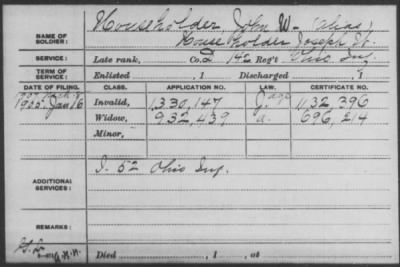 NAME OF SOLDIER: Householder, John W. (alias)
Householder, Joseph W.
SERVICE: Late rank, Co. I 142 Reg't Ohio Inf.
TERM OF SERVICE: Enlisted , 1 Discharged , 1
DATE OF FILING. CLASS. APPLICATION NO. LAW. CERTIFICATE NO.
1905, Jan 16 Invalid, 1,330,147 1132,396
Widow, 932,439 a. 696,214
Minor,
ADDITIONAL SERVICES: I. 52 Ohio Inf.
REMARKS:
Died , 1 , at